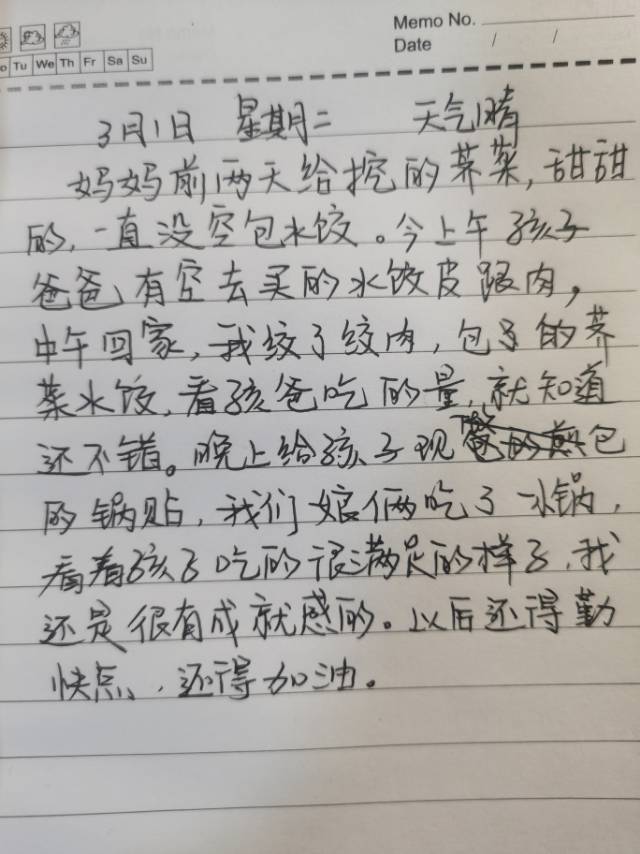 Memo No.
Date / /
Tu We Th Fr Sa Su
3月1日 星期二 天气晴
妈妈前两天给挖的荠菜,甜甜
的,一直没空包水饺。今上午孩子
爸爸有空去买的水饺皮跟肉,
中午回家,我绞了绞肉,包了的荠
菜水饺,看孩爸吃的量,就知道
还不错。晚上给孩子现包
的锅贴,我们娘俩吃了一小锅,
看着孩子吃的很满足的样子,我
还是很有成就感的。以后还得勤
快点,还得加油。